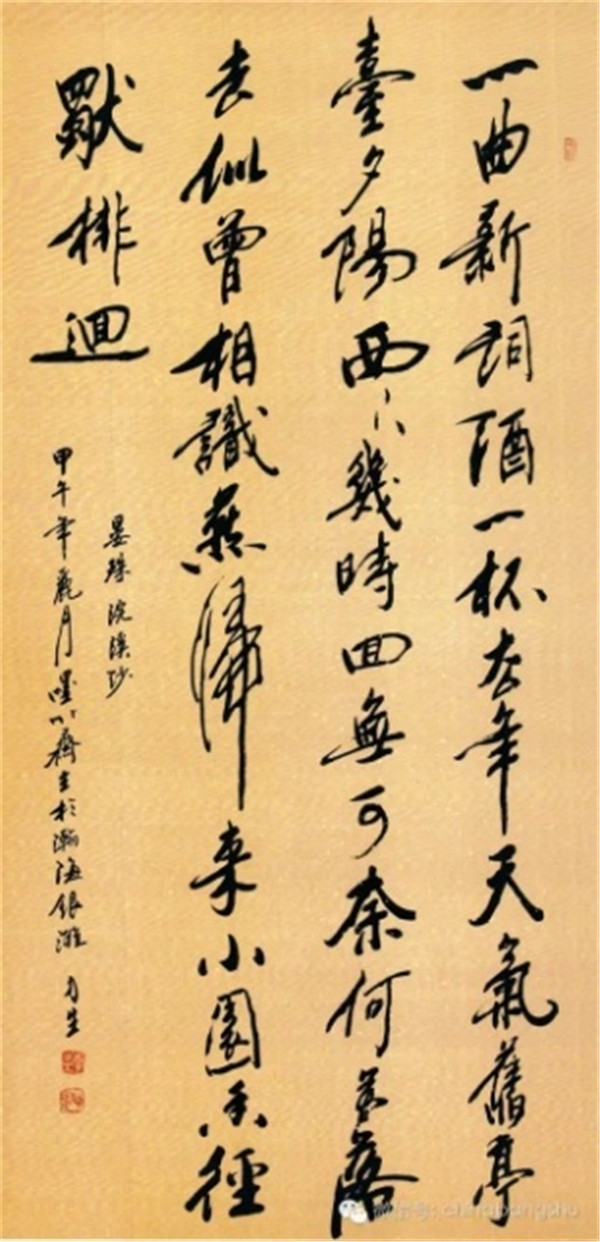 一曲新詞酒一杯去年天氣舊亭
臺夕陽西下幾時回無可奈何花落
去似曾相識燕歸來小園香徑
獨徘迴
晏殊 浣溪沙
甲午年 月 齋主於瀚海銀灘
微信号: